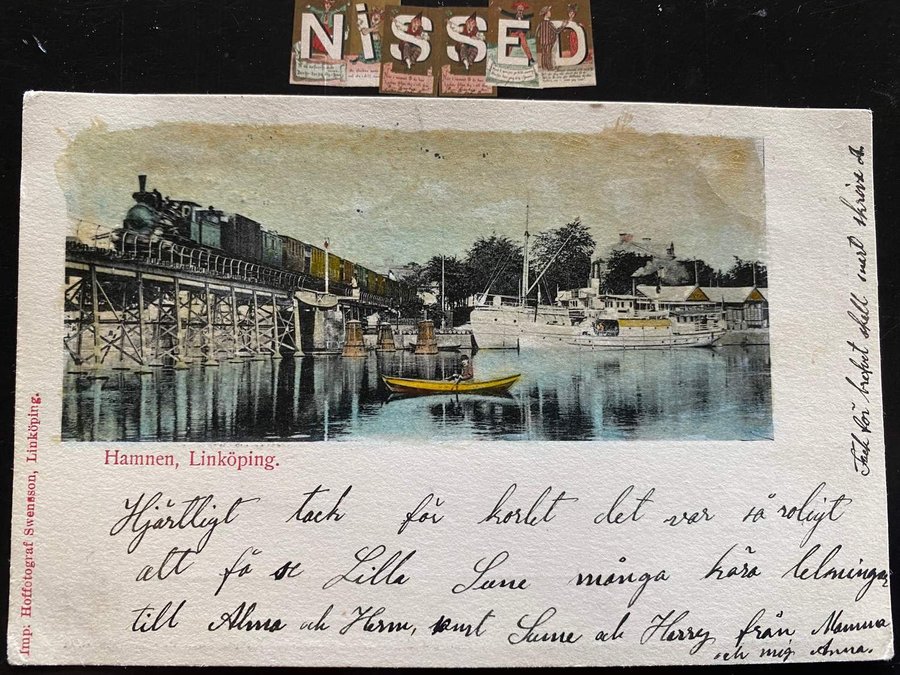 NISSED
Hamnen, Linköping.
Imp: Hoffotograf Swensson, Linköping.
Hjärtligt tack för kortet det var så roligt
att få se Lilla Sune många kära helsningar
till Alma och Herm, samt Sune och Harry från Mamma
och mig Anna.
Tack för brefvet skall snart skriva